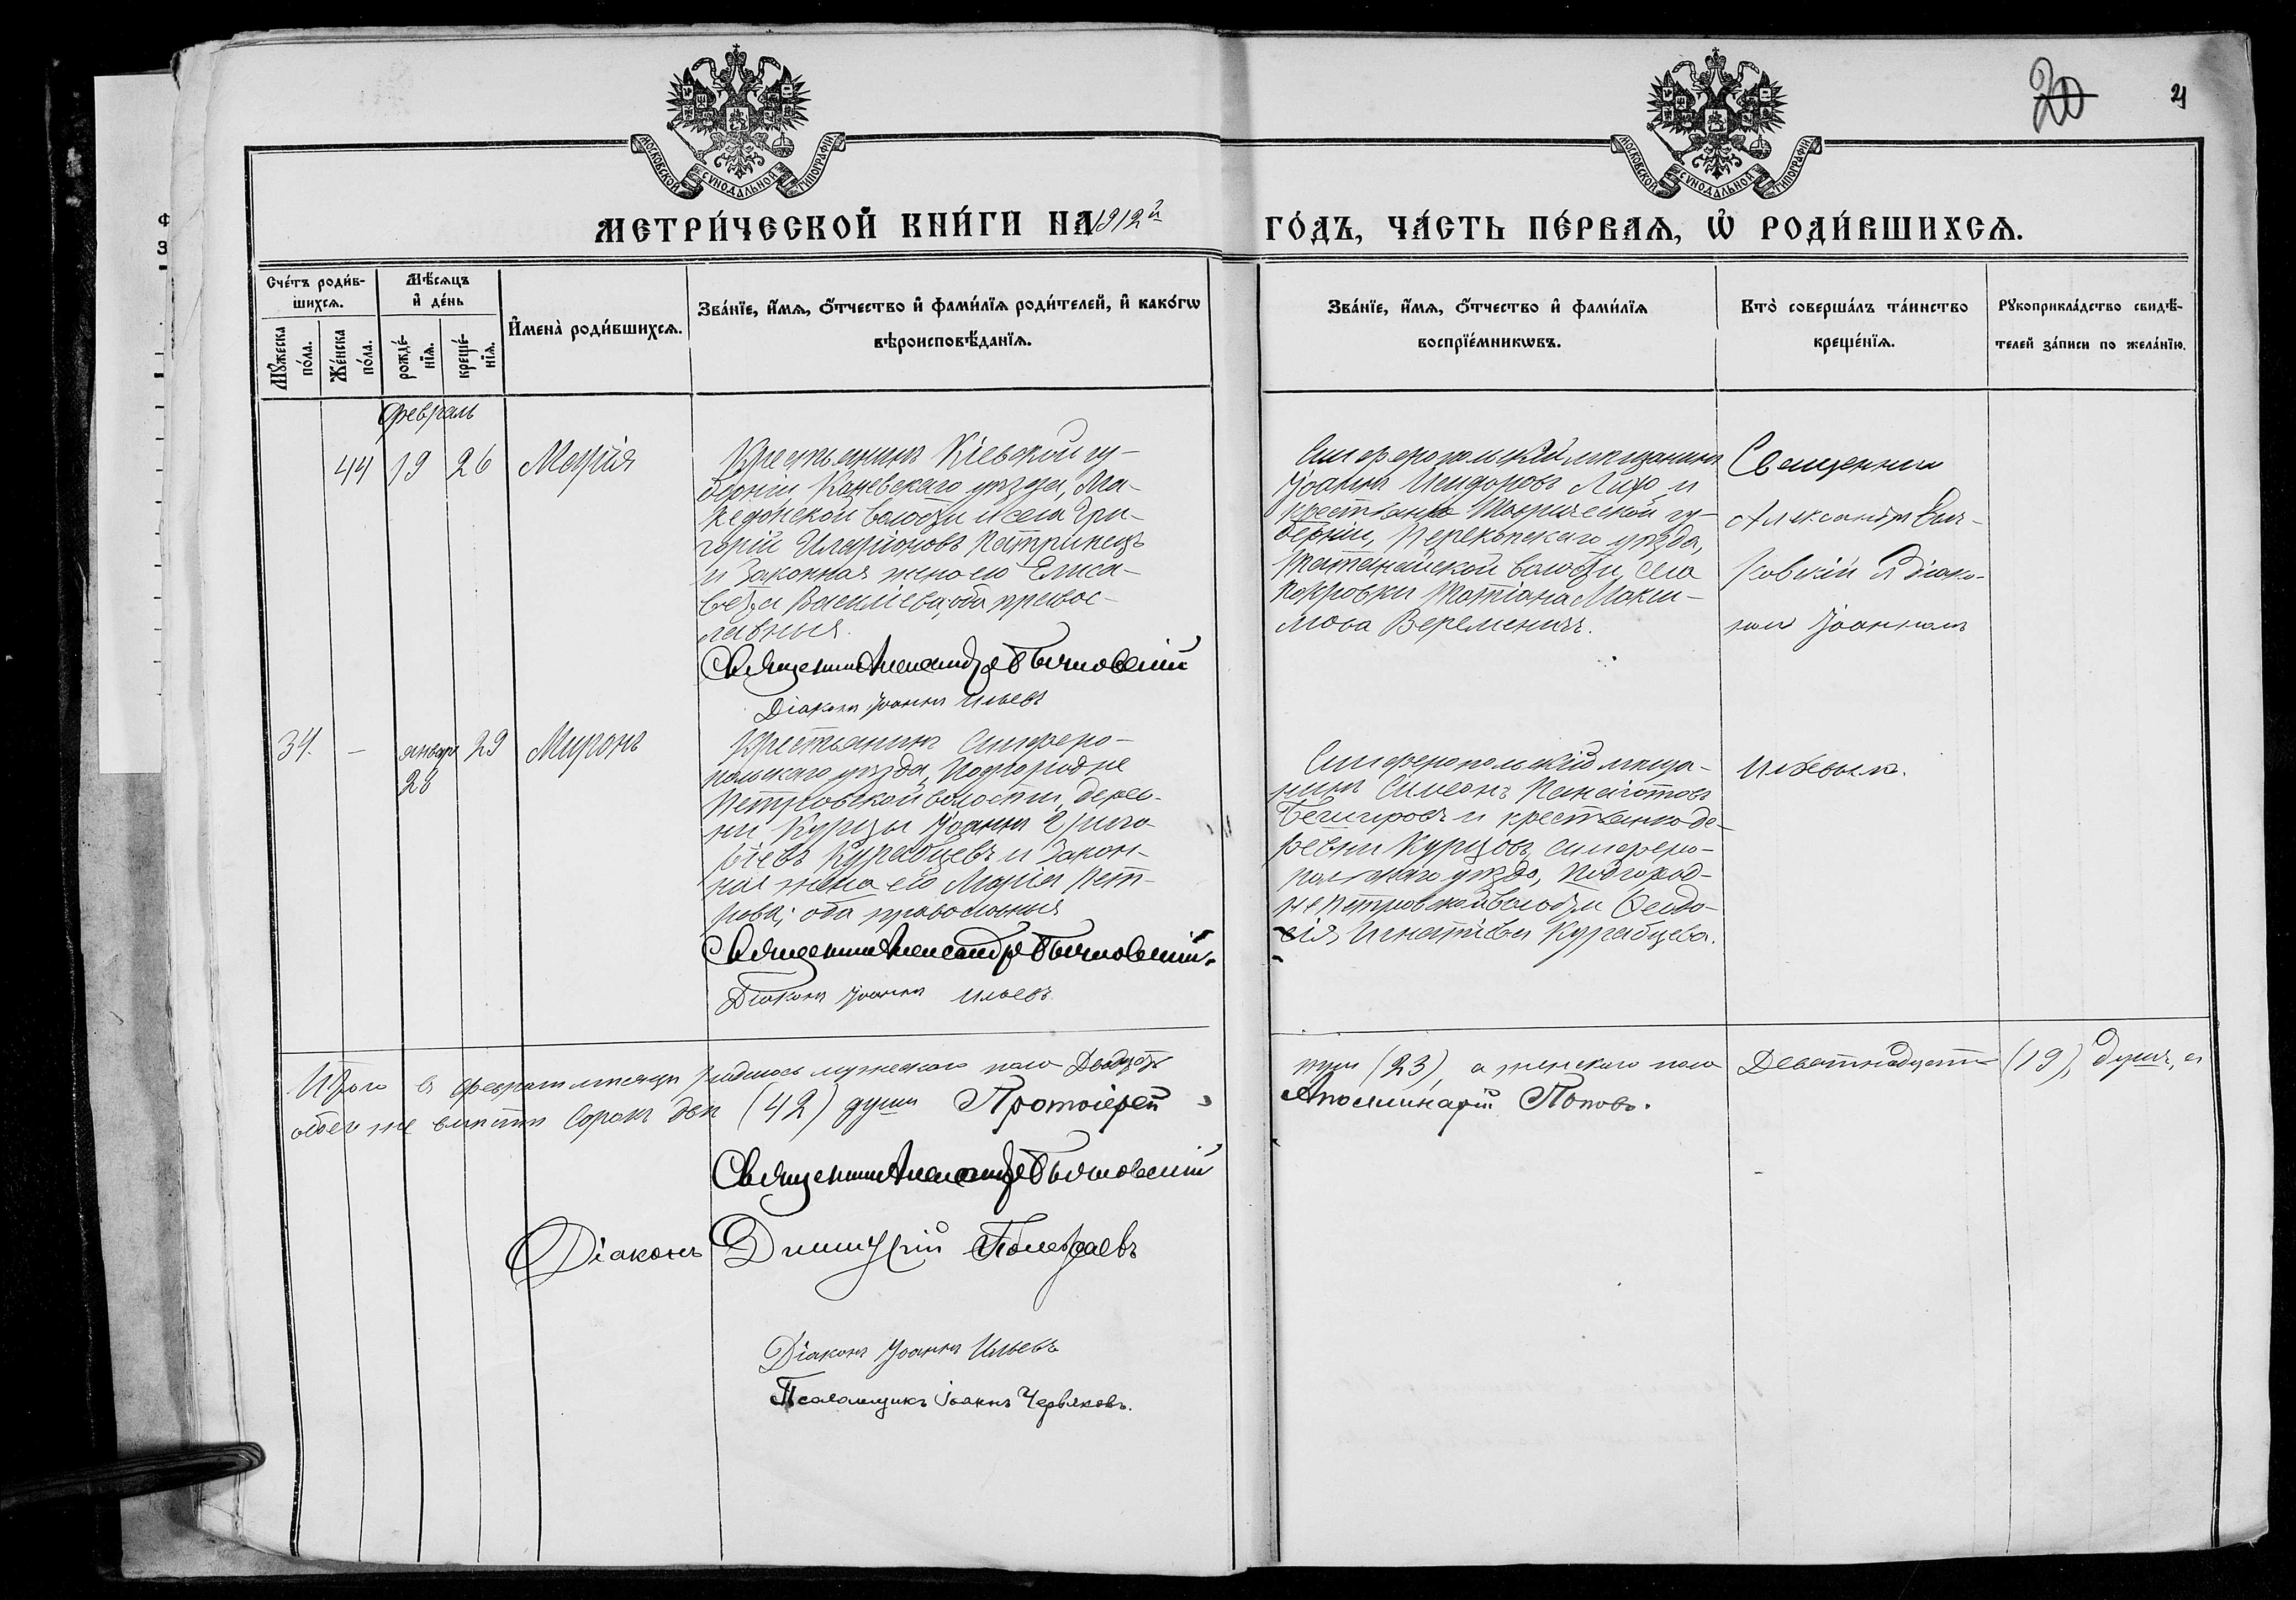 20 21
МОСКОВСКОЙ СѴНОДАЛЬНОЙ ТИПОГРАФІИ
МОСКОВСКОЙ СѴНОДАЛЬНОЙ ТИПОГРАФІИ
МЕТРИ́ЧЕСКОЙ КНИ́ГИ НА 1912й ГО́ДЪ, ЧА́СТЬ ПЕ́РВАѦ, Ѡ҆ РОДИ́ВШИХСѦ.
Сче́тъ роди́в-
шихсѧ.
Мꙋ́жеска по́ла.
Же́нска по́ла.
Мѣ́сѧцъ
и҆ де́нь
рожде́-
нїѧ.
креще́-
нїѧ.
И҆мена̀ роди́вшихсѧ.
Зва́нїе, и҆́мѧ, ѻ҆́тчество и҆ фами́лїѧ роди́телей, и҆ како́гѡ
вѣроисповѣ́данїѧ.
Зва́нїе, и҆́мѧ, ѻ҆́тчество и҆ фами́лїѧ
воспрїе́мникѡвъ.
Кто̀ соверша́лъ та́инство
креще́нїѧ.
Рꙋкоприкла́дство свидѣ́-
телей за́писи по жела́нїю.
Февраль
44 19 26 Марія
Крестьянинъ Кіевской гу-
берніи, Каневскаго уѣзда, Ма-
кедонской волости и села Гри-
горій Иларіоновъ Петринецъ
и законная жена его Елиса-
вета Василіева, оба правос-
лавныя.
Священникъ Александръ Бычковскій
Діаконъ Іоаннъ Ильевъ
Симферопольскій мѣщанинъ
Іоаннъ Исидоровъ и
крестьянка Таврической гу-
берніи, Перекопскаго уѣзда,
волости, села
Покровки Татіана Макси-
мова Веременичъ.
Священникъ
Александръ Быч-
ковскій и діако-
номъ Іоанномъ
34. — январь 28 29 Миронъ
Крестьянинъ Симферо-
польскаго уѣзда, Подгородне
Петровской волости, дерев-
ни Курцы Іоаннъ Григо-
рьевъ Курабцевъ и закон-
ная жена его Марія Пет-
рова; оба православныя
Священникъ Александръ Бычковскій.
Діаконъ Іоаннъ Ильевъ.
Симферопольскій мѣща-
нинъ Симеонъ Панаіотовъ
и крестьянка де-
ревни Курцовъ, Симферо-
польскаго уѣзда, Подгород-
не петровской волости Феодо-
сія Игнатіева Курабцева.
Ильевымъ.
Итого въ февралѣ мѣсяцѣ родилось мужескаго пола двадцать три (23), а женскаго пола девятнадцать (19) душъ, а
обоего же вмѣстѣ сорокъ двѣ (42) души Протоіерей Аполлинарій Поповъ.
Священникъ Александръ Бычковскій
Діаконъ Димитрій Полежаевъ
Діаконъ Іоаннъ Ильевъ
Псаломщикъ Іоаннъ Червяковъ.